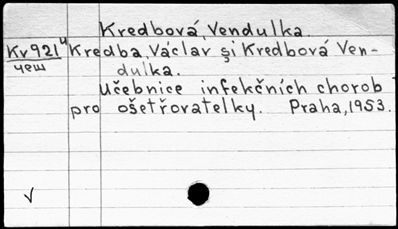 Kredbová, Vendulka.
Kv921ч Kredba, Václav şi Kredbová Ven-
чеш dulka.
Učebnice infekčních chorob
pro ošetřovatelky. Praha, 1953.